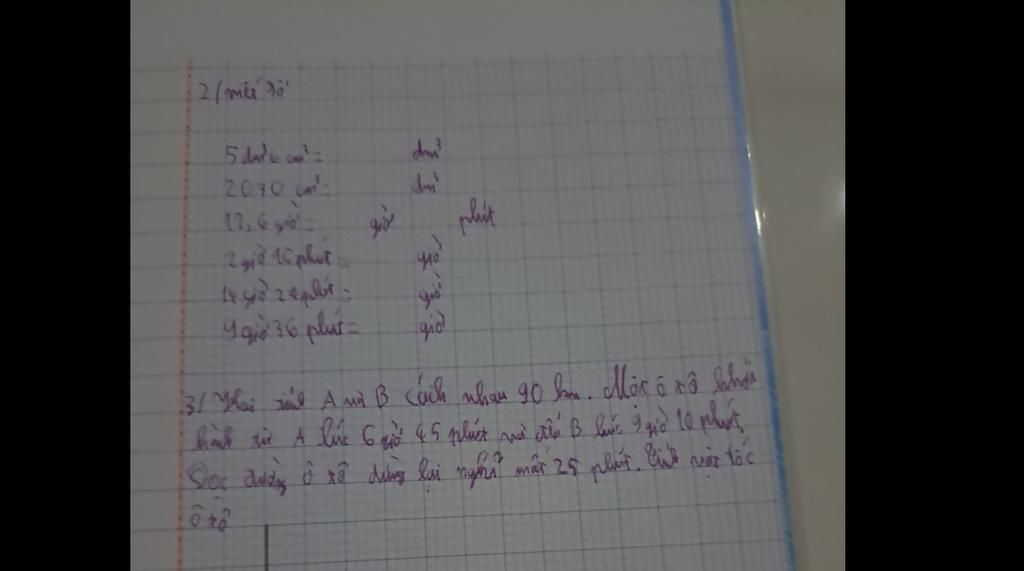 2/
5 dm³ 6 cm³ = dm³
2030 cm³ = dm³
12,6 giờ = giờ phút
2 giờ 15 phút = giờ
14 giờ 24 phút = giờ
9 giờ 36 phút = giờ
3/ Hai tỉnh A và B cách nhau 90 km. Một ô tô khởi
hành từ A lúc 6 giờ 45 phút và đến B lúc 9 giờ 10 phút.
Dọc đường ô tô dừng lại nghỉ mất 25 phút. Tính vận tốc
ô tô